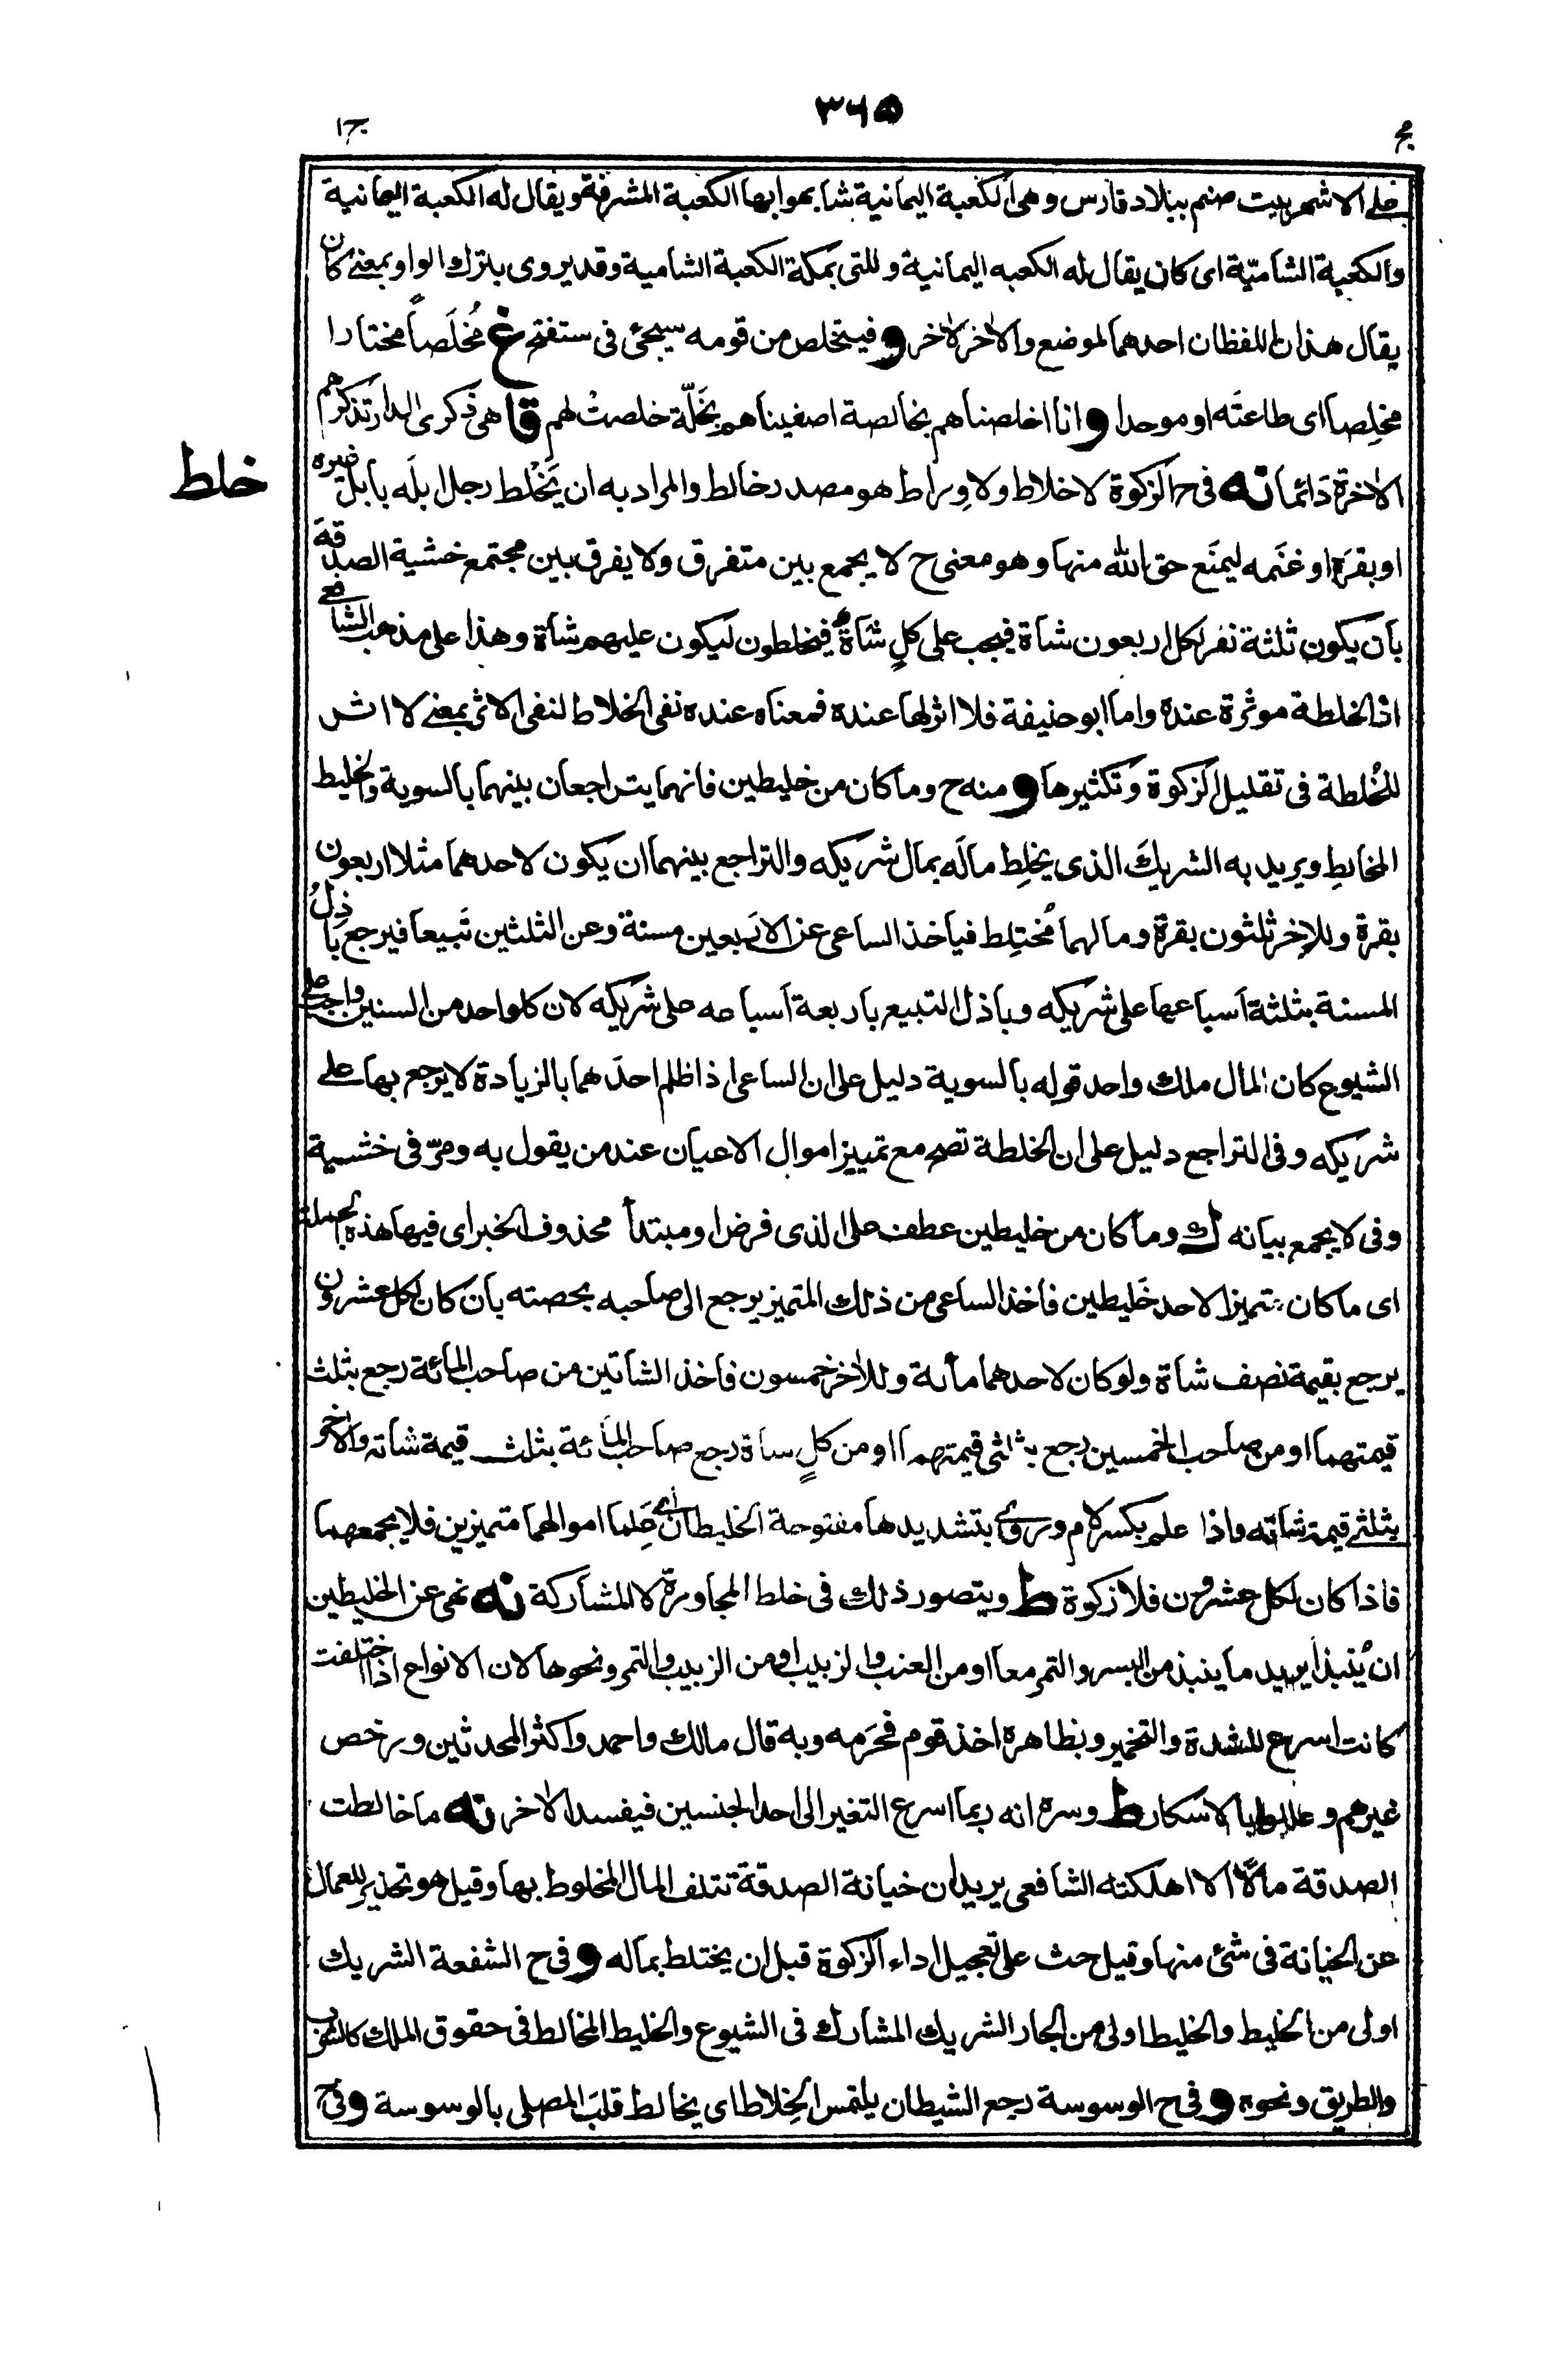 ٣٦٥
مج
ج١
على الاشهر بيت صنم ببلاد فارس وهى الكعبة اليمانية شابهوا بها الكعبة المشرفة ويقال له الكعبة اليمانية
والكعبة الشاميّة اى كان يقال له الكعبه اليمانية وللتى بمكة الكعبة الشامية وقد يروى بترك الواو بمعنى كان
يقال هذان اللفظان احدهما لموضع والاٰخر لاٰخر و فيتخلص من قومه سيجئ فى ستفتح غ مُخلَصاً مختارا
مخلِصا اى طاعتَه او موحدا و انا اخلصناهم بخالصة اصفيناهم بخَلّة خلصتْ لهم قا هى ذكرى الدار تذكرهم
الاٰخرة دَائما نه فى ح الزكوة لا خلاط ولا وِراط هو مصدر خالط والمراد به ان يَخْلط رجل ابلَه بابل غيره
خلط
او بقرَه او غنَمه ليمنَع حق الله منها وهو معنى ح لا يجمع بين متفرق ولا يفرق بين مجتمع خشية الصدقة
بان يكون ثلثة نفر لكل اربعون شاة فيجب على كلٍ شاةٌ فيخلطون ليكون عليهم شاة وهذا على مذهب الشافعى
اذ الخلطة موثرة عنده واما ابو حنيفة فلا اثر لها عنده فمعناه عنده نفى الخلاط لنفى الاثر بمعنى لا اثر
للخُلطة فى تقليل الزكوة وتكثيرها و منه ح وما كان من خليطين فانهما يتراجعان بينهما بالسوية والخليط
المخالطِ ويريد به الشريكَ الذى يخلِط مالَه بمال شريكه والتراجع بينهما ان يكون لاحدهما مثلا اربعون
بقرة وللاٰخر ثلثون بقرة ومالهما مُختلِط فياخذ الساعى عن الاربعين مسنة وعن الثلثين تَبيعا فيرجع باذلُ
المسنة بثلثة اَسباعها على شريكه وباذل التبيع باربعة اَسباعه على شريكه لان كلواحد من السنين واجب على
الشيوع كان المال ملك واحد قوله بالسوية دليل على ان الساعى اذا ظلم احدَهما بالزيادة لا يرجع بها على
شريكه وفى التراجع دليل على ان الخلطة تصح مع تمييز اموال الاعيان عند من يقول به ومرّ فى خشية
وفى لا يجمع بيانه ك وما كان من خليطين عطف على الذى فرض او مبتدأ محذوف الخبر اى فيها هذه الجملة
اى ما كان متميزا لاحد خَليطين فاخذ الساعى من ذلك المتميز يرجع الى صاحبه بحصته بان كان لكل عشرون
يرجع بقيمة نصف شاة ولو كان لاحدهما مائة وللاٰخر خمسون فاخذ الشاتين من صاحب المائة رجع بثلث
قيمتهما او من صاحب الخمسين رجع بثلثى قيمتهما او من كلٍ شاة رجع صاحب المائة بثلث قيمة شاته والاٰخر
بثلثى قيمة شاته واذا علم بكسر لام وروى بتشديدها مفتوحة الخليطان اى علما اموالهما متميزين فلا يجمعهما
فاذا كان لكل عشرون فلا زكوة ط ويتصور ذلك فى خلط المجاورة لا المشاركة نه نهى عن الخليطين
ان يُنبذا يريد ما ينبذ من البسر والتمر معا او من العنب والزبيب او من الزبيب والتمر ونحوها لان الانواع اذا اختلفت
كانت اسرع للشدة والتخمير وبظاهره اخذ قوم فحَرمه وبه قال مالك واحمد واكثر المحدثين ورخص
غيرهم وعللوا بالاسكار ط وسره انه ربما اسرع التغير الى احد الجنسين فيفسد الاٰخر نه ما خالطت
الصدقة مالًا الا اهلكته الشافعى يريد ان خيانة الصدقة تتلف المال المخلوط بها وقيل هو تحذير للعمال
عن الخيانة فى شئ منها وقيل حث على تعجيل اداء الزكوة قبل ان يختلط بماله و فى ح الشفعة الشريك
اولى من الخليط والخليط اولى من الجار الشريك المشارك فى الشيوع والخليط المخالط فى حقوق الملك كالشرب
والطريق ونحوه و فى ح الوسوسة رجع الشيطان يلتمس الخِلاط اى يخالط قلبَ المصلى بالوسوسة و فى ح